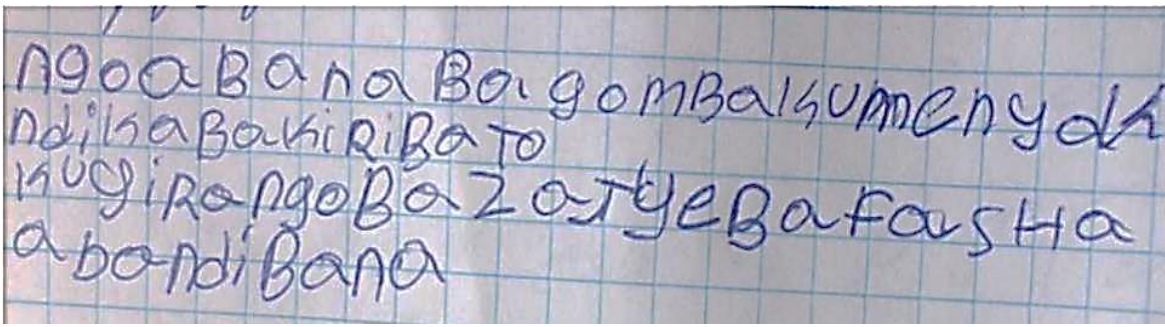 ngoaBana BagomBakumenyak
ndikaBakiRiBaTO
kugiRangoBaZaTyeBafasHa
abandiBana